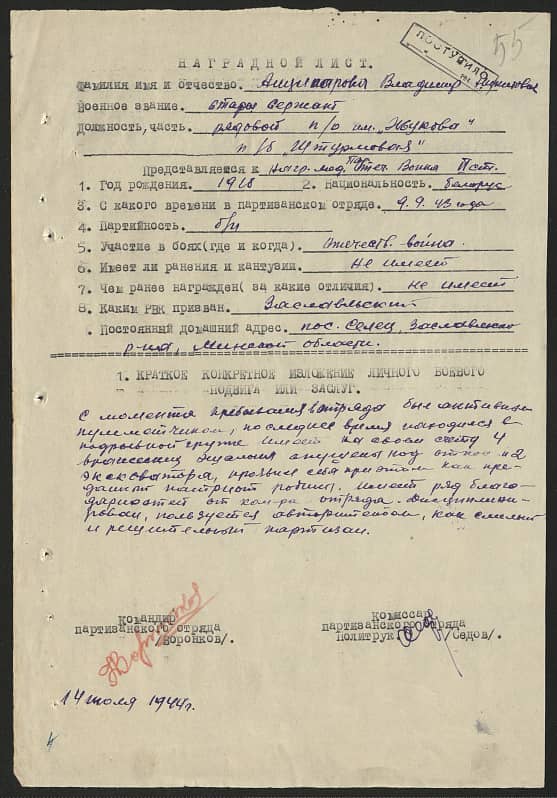 55
ПОСТУПИЛО
НАГРАДНОЙ ЛИСТ.
Фамилия имя и отчество. Владимир
Военное звание. старш сержант
Должность, часть. рядовой п/о им. "Жукова"
п/б "Штурмовая"
Представляется к Нагр. мед. Парт. Отеч. Война II ст.
1. Год рождения. 1918 2. Национальность. белорус
3. С какого времени в партизанском отряде. 9.9.43 года
4. Партийность. б/п
5. Участие в боях(где и когда). Отечеств. война.
6. Имеет ли ранения и кантузии. Не имеет
7. Чем ранее награжден( за какие отличия). Не имеет
8. Каким РВК призван. Заславльский
. Постоянный домашний адрес. пос. Селец, Заславльско
р-на, Минской области.
1. КРАТКОЕ КОНКРЕТНОЕ ИЗЛОЖЕНИЕ ЛИЧНОГО БОЕВОГО
ПОДВИГА ИЛИ ЗАСЛУГ.
С момента пребывания в отряде был активным
пулеметчиком, последнее время находился в
подрывной группе имеет на своем счету 4
вражеских эшелона спущены под откос и 2
экскаватора, проявив себя при этом как пре-
данный патриот родины. Имеет ряд благо-
дарностей от ком-ра отряда. Дисциплини-
рован, пользуется авторитетом, как смелый
и решительный партизан.
Командир
партизанского отряда
/Воронков/.
Комиссар
партизанского отряда
Политрук /Седов/.
14 июля 1944г.
4